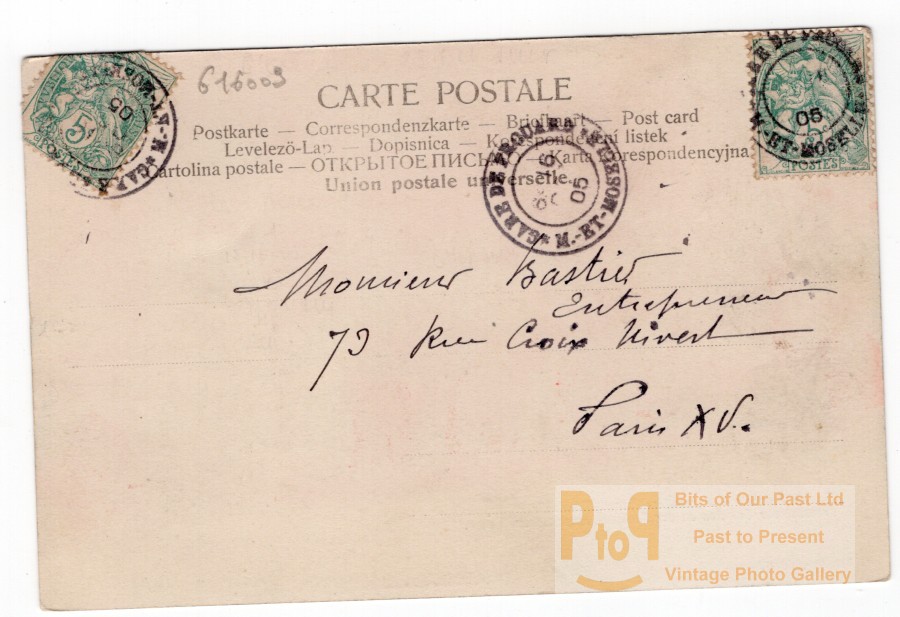 616003
CARTE POSTALE
Postkarte — Correspondenzkarte — Briefkaart — Post card
Levelező-Lap — Dopisnica — Korespondenční listek
Cartolina postale — ОТКРЫТОЕ ПИСЬМО — Karta korespondencyjna
Union postale universelle.
GARE DE
M.-ET-MOSELLE
05
POSTES
5
05
Monsieur Bastier
Entrepreneur
73 Rue Croix Nivert
Paris XV.
PtoP
Bits of Our Past Ltd
Past to Present
Vintage Photo Gallery